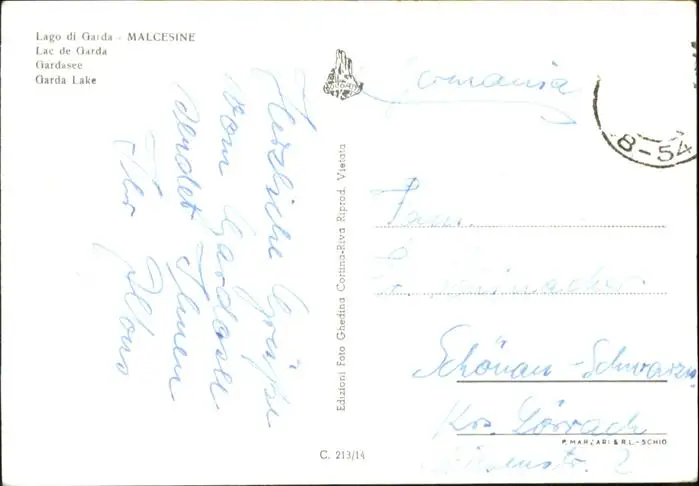 Lago di Garda - MALCESINE
Lac de Garda
Gardasee
Garda Lake
Herzliche Grüße
vom Gardasee
sendet Ihnen
Ihr
Edizioni Foto Ghedina Cortina-Riva Riprod. Vietata
C. 213/14
Germania
8-54
Fam.
Schönau-Schwarzw
Krs. Lörrach
P. MARZARI & R.L.-SCHIO
2